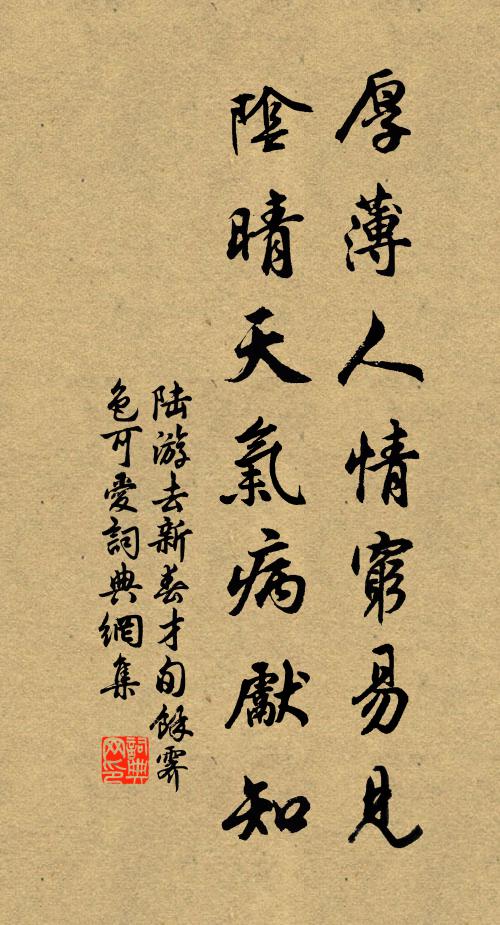 厚薄人情窮易見
陰晴天氣病獻知
陸游去新春才旬餘霽
色可愛詞典網集
詞典
网印